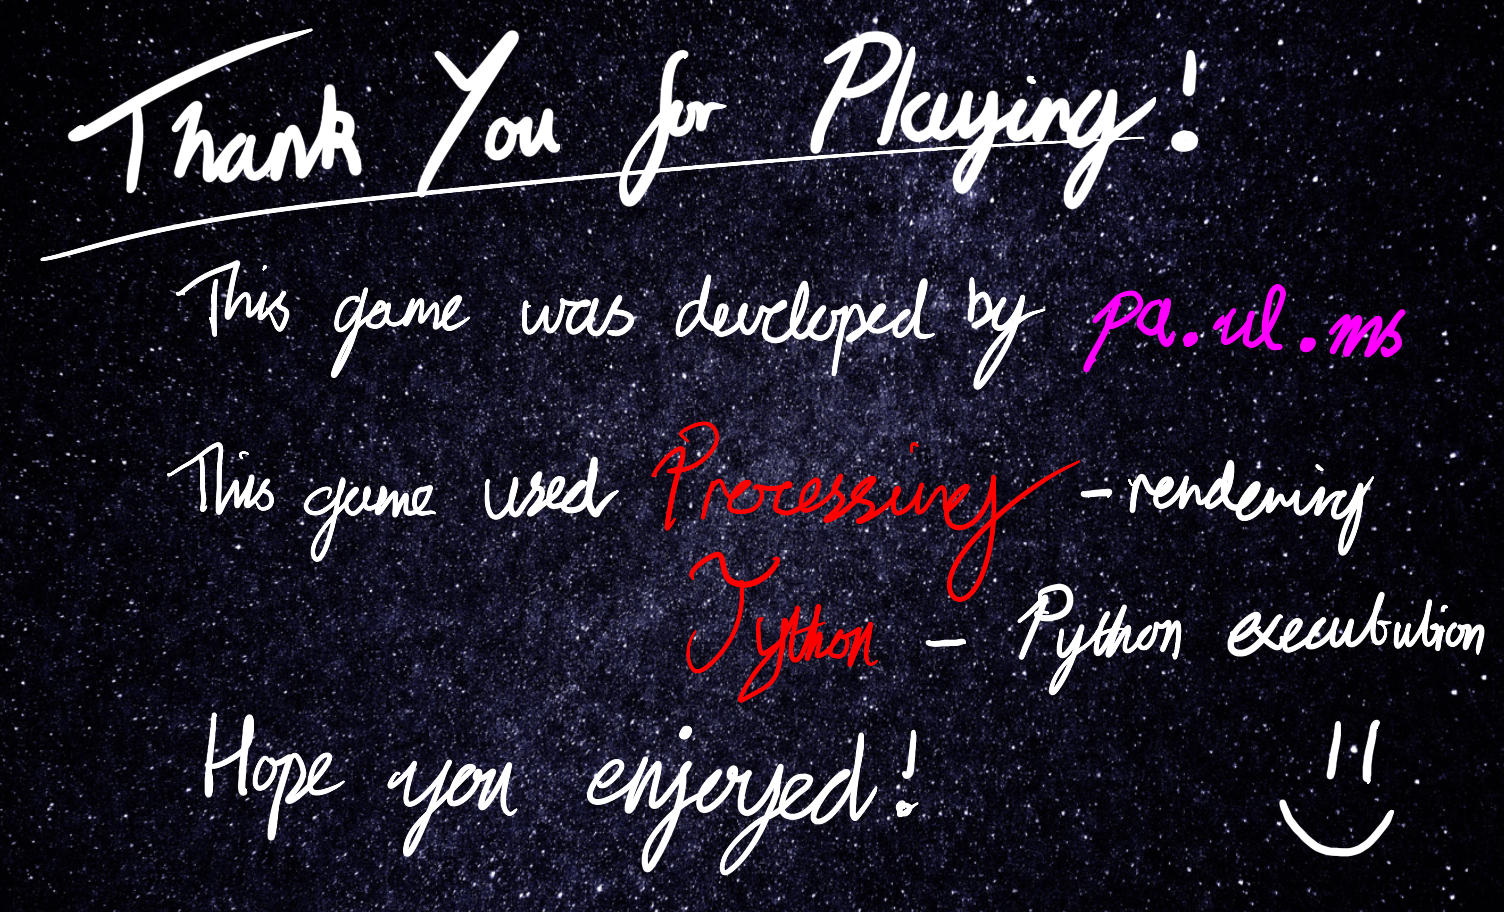 Thank You for Playing!
This game was developed by pa.ul.ms
This game used Processing - rendering
Jython - Python executution
Hope you enjoyed!